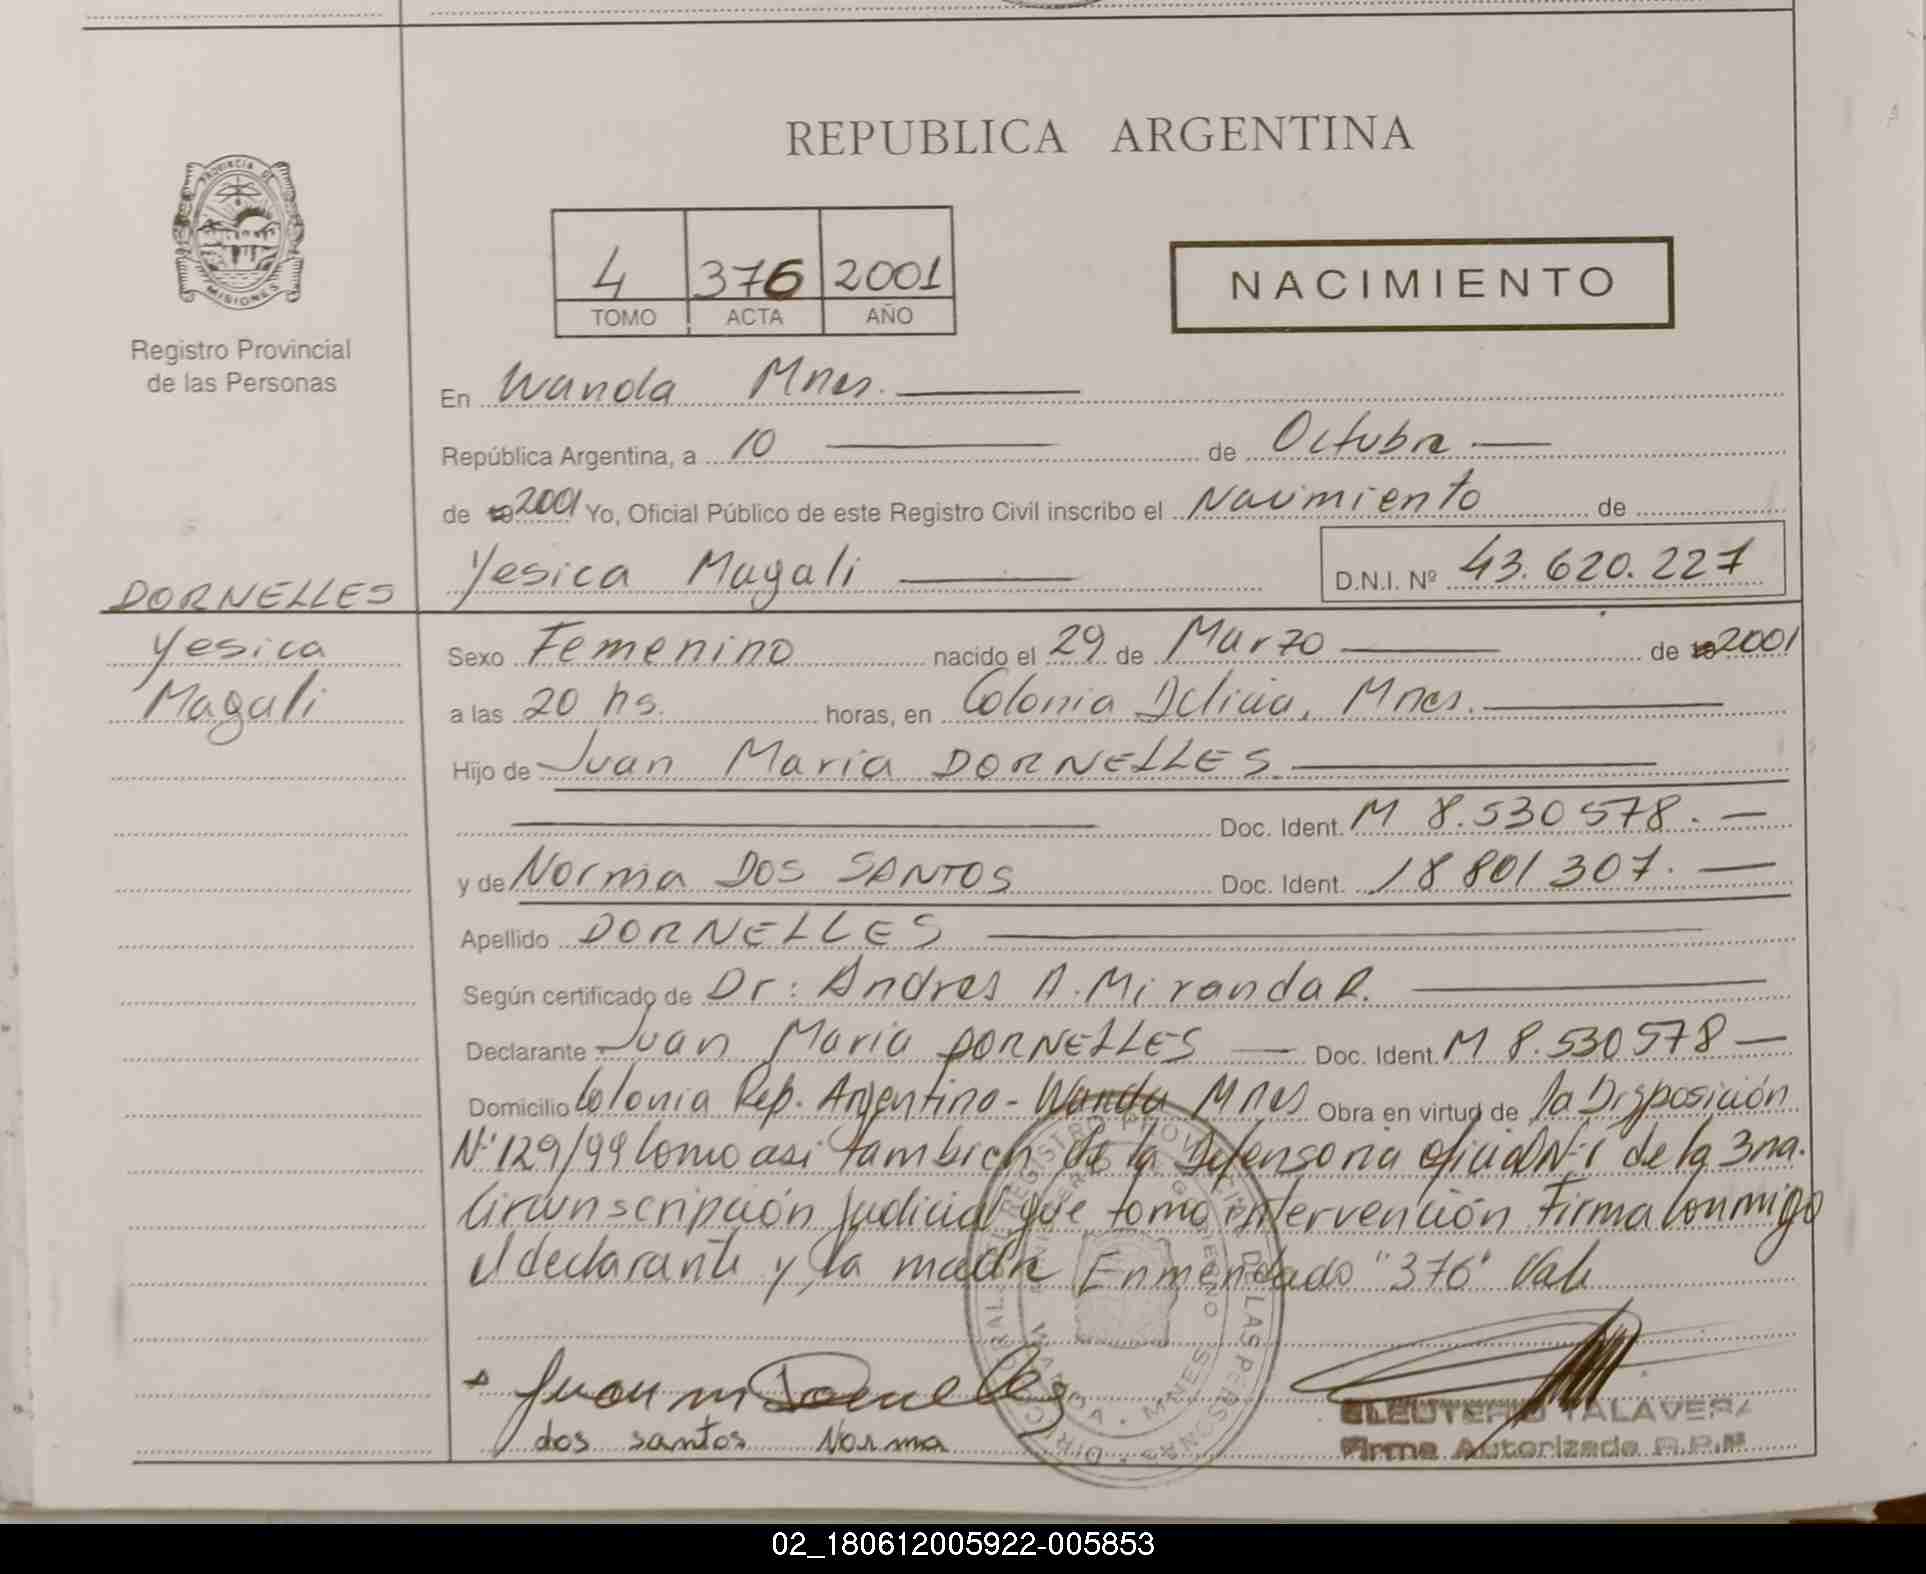 REPUBLICA ARGENTINA
PROVINCIA DE
MISIONES
Registro Provincial
de las Personas
4 376 2001
TOMO ACTA AÑO
NACIMIENTO
En Wanda Mnes.
República Argentina, a 10 de Octubre
de 2001 Yo, Oficial Público de este Registro Civil inscribo el Nacimiento de
Yesica Magali D.N.I. Nº 43.620.227
DORNELLES
Yesica
Magali
Sexo Femenino nacido el 29 de Marzo de 2001
a las 20 hs. horas, en Colonia Delicia, Mnes.
Hijo de Juan Maria DORNELLES
Doc. Ident. M 8.530578.
y de Norma DOS SANTOS Doc. Ident. 18801307.
Apellido DORNELLES
Según certificado de Dr: Andres A. Miranda R.
Declarante Juan Maria DORNELLES Doc. Ident. M 8.530578
Domicilio Colonia Rep. Argentina - Wanda Mnes Obra en virtud de la Disposición
Nº 129/99 como asi tambien de la Defensoria oficial Nº 1 de la 3ra.
Circunscripción Judicial que tomo intervención Firma Conmigo
el declarante y la madre Enmendado "376" Vale
Juan M Dornelles
dos santos Norma
ELEUTERIO TALAVERA
Firma Autorizada R.P.P.
02_180612005922-005853